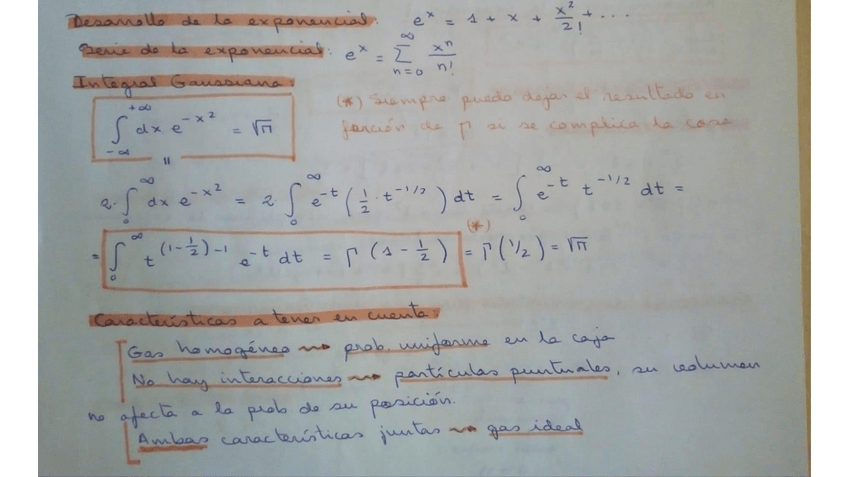 Desarrollo de la exponencial: e^x = 1 + x + x²/2! + ...
Serie de la exponencial: e^x = ∑_{n=0}^{∞} x^n/n!
Integral Gaussiana:
∫_{-∞}^{+∞} dx e^{-x²} = √π
(*) Siempre puedo dejar el resultado en
función de Γ si se complica la cosa
"
2·∫_0^∞ dx e^{-x²} = 2·∫_0^∞ e^{-t} (1/2 · t^{-1/2}) dt = ∫_0^∞ e^{-t} t^{-1/2} dt =
= ∫_0^∞ t^{(1-1/2)-1} e^{-t} dt = Γ(1 - 1/2) (*) = Γ(1/2) = √π
Características a tener en cuenta:
Gas homogéneo ⇝ prob uniforme en la caja
No hay interacciones ⇝ partículas puntuales, su volumen
no afecta a la prob de su posición.
Ambas características juntas ⇝ gas ideal